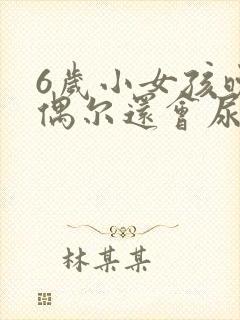 6歲小女孩
偶尔還會尿
林某某